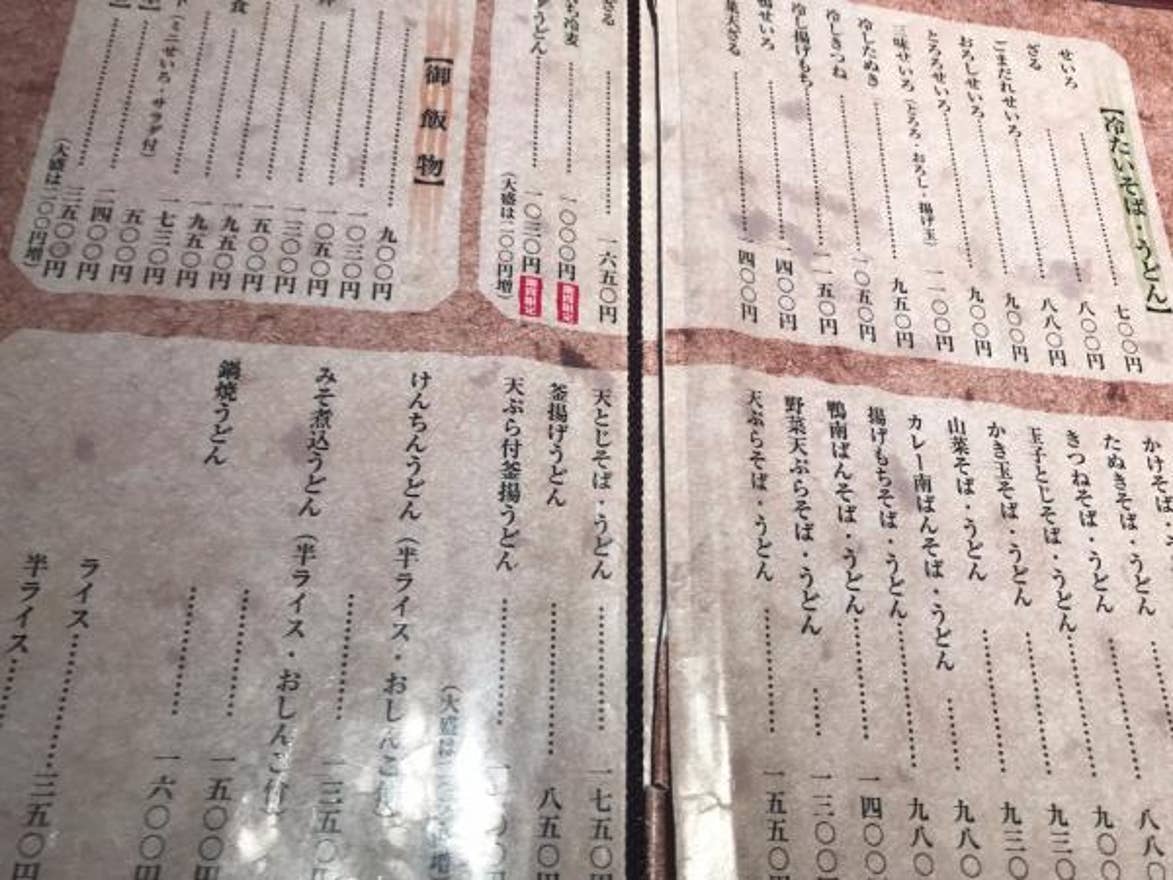 【冷たいそば・うどん】
せいろ 七〇〇円
ざる 八〇〇円
ごまだれせいろ 八八〇円
おろしせいろ 九〇〇円
とろろせいろ 九〇〇円
三味せいろ（とろろ・おろし・揚げ玉） 一一〇〇円
冷したぬき 九五〇円
冷しきつね 一〇五〇円
冷し揚げもち 一一五〇円
鴨せいろ 一四〇〇円
菜天ざる 一四〇〇円
ざる 一六五〇円
冷麦 一〇〇〇円 期間限定
うどん 一〇三〇円 期間限定
（大盛は二〇〇円増）
【御飯物】
九〇〇円
一〇三〇円
一〇五〇円
一三〇〇円
一五〇〇円
食 一九五〇円
一九五〇円
（ミニせいろ・サラダ付） 一七三〇円
一五〇〇円
一四〇〇円
三五〇〇円
（大盛は二〇〇円増）
かけそば 八八〇
たぬきそば・うどん 九〇〇
きつねそば・うどん 九三〇
玉子とじそば・うどん 九三〇
かき玉そば・うどん 九八〇
山菜そば・うどん 九八〇
カレー南ばんそば・うどん
揚げもちそば・うどん
鴨南ばんそば・うどん 一四〇〇
野菜天ぷらそば・うどん 一三〇〇円
天ぷらそば・うどん 一五五〇
天とじそば・うどん 一七五〇円
釜揚げうどん 八五〇円
天ぷら付釜揚うどん
（大盛は
けんちんうどん（半ライス・おしんこ付） 一三五〇円
みそ煮込うどん（半ライス・おしんこ付） 一五〇〇円
鍋焼うどん 一六〇〇円
ライス 二五〇円
半ライス